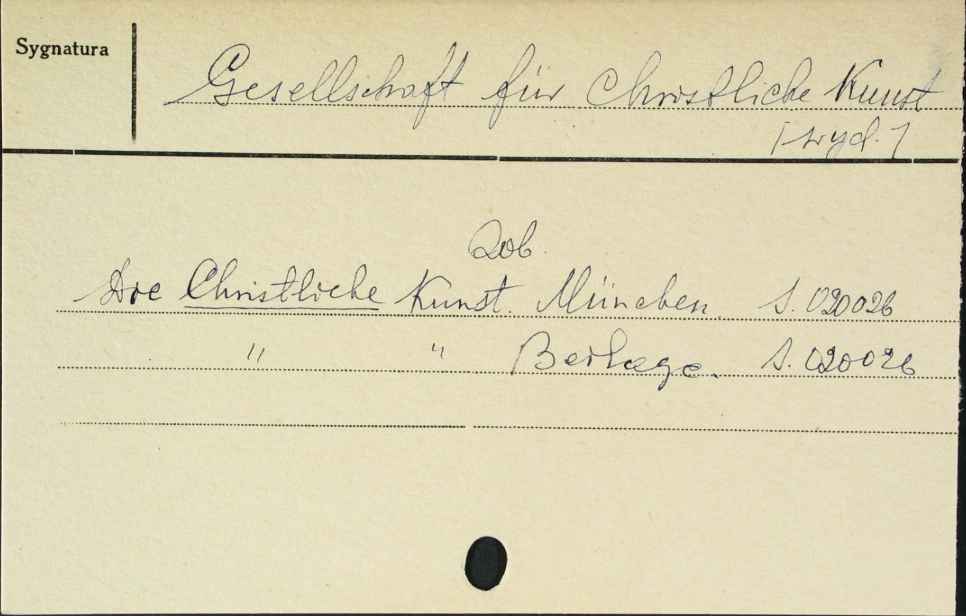 Sygnatura
Gesellschaft für Christliche Kunst
[wyd.]
Zob.
Die Christliche Kunst. München. S. 020026
" " Beilage. S. 020026